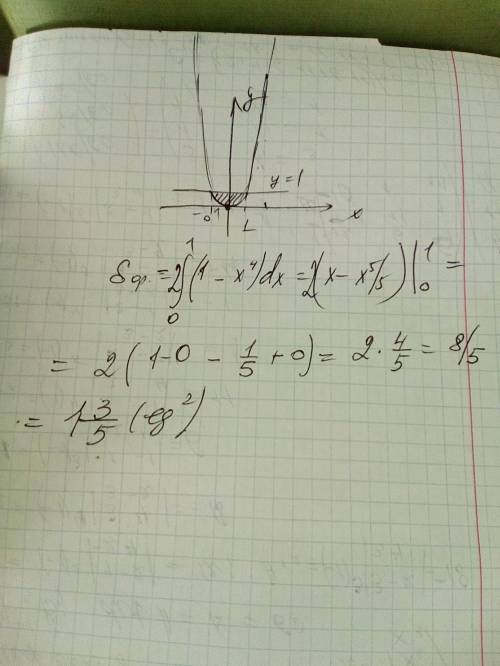 y
y = 1
-1 0 1 x
Sф. = 2∫₀¹(1 - x⁴)dx = 2(x - x⁵/5)|₀¹ =
= 2(1-0 - 1/5 + 0) = 2 · 4/5 = 8/5
= 1 3/5 (ед²)